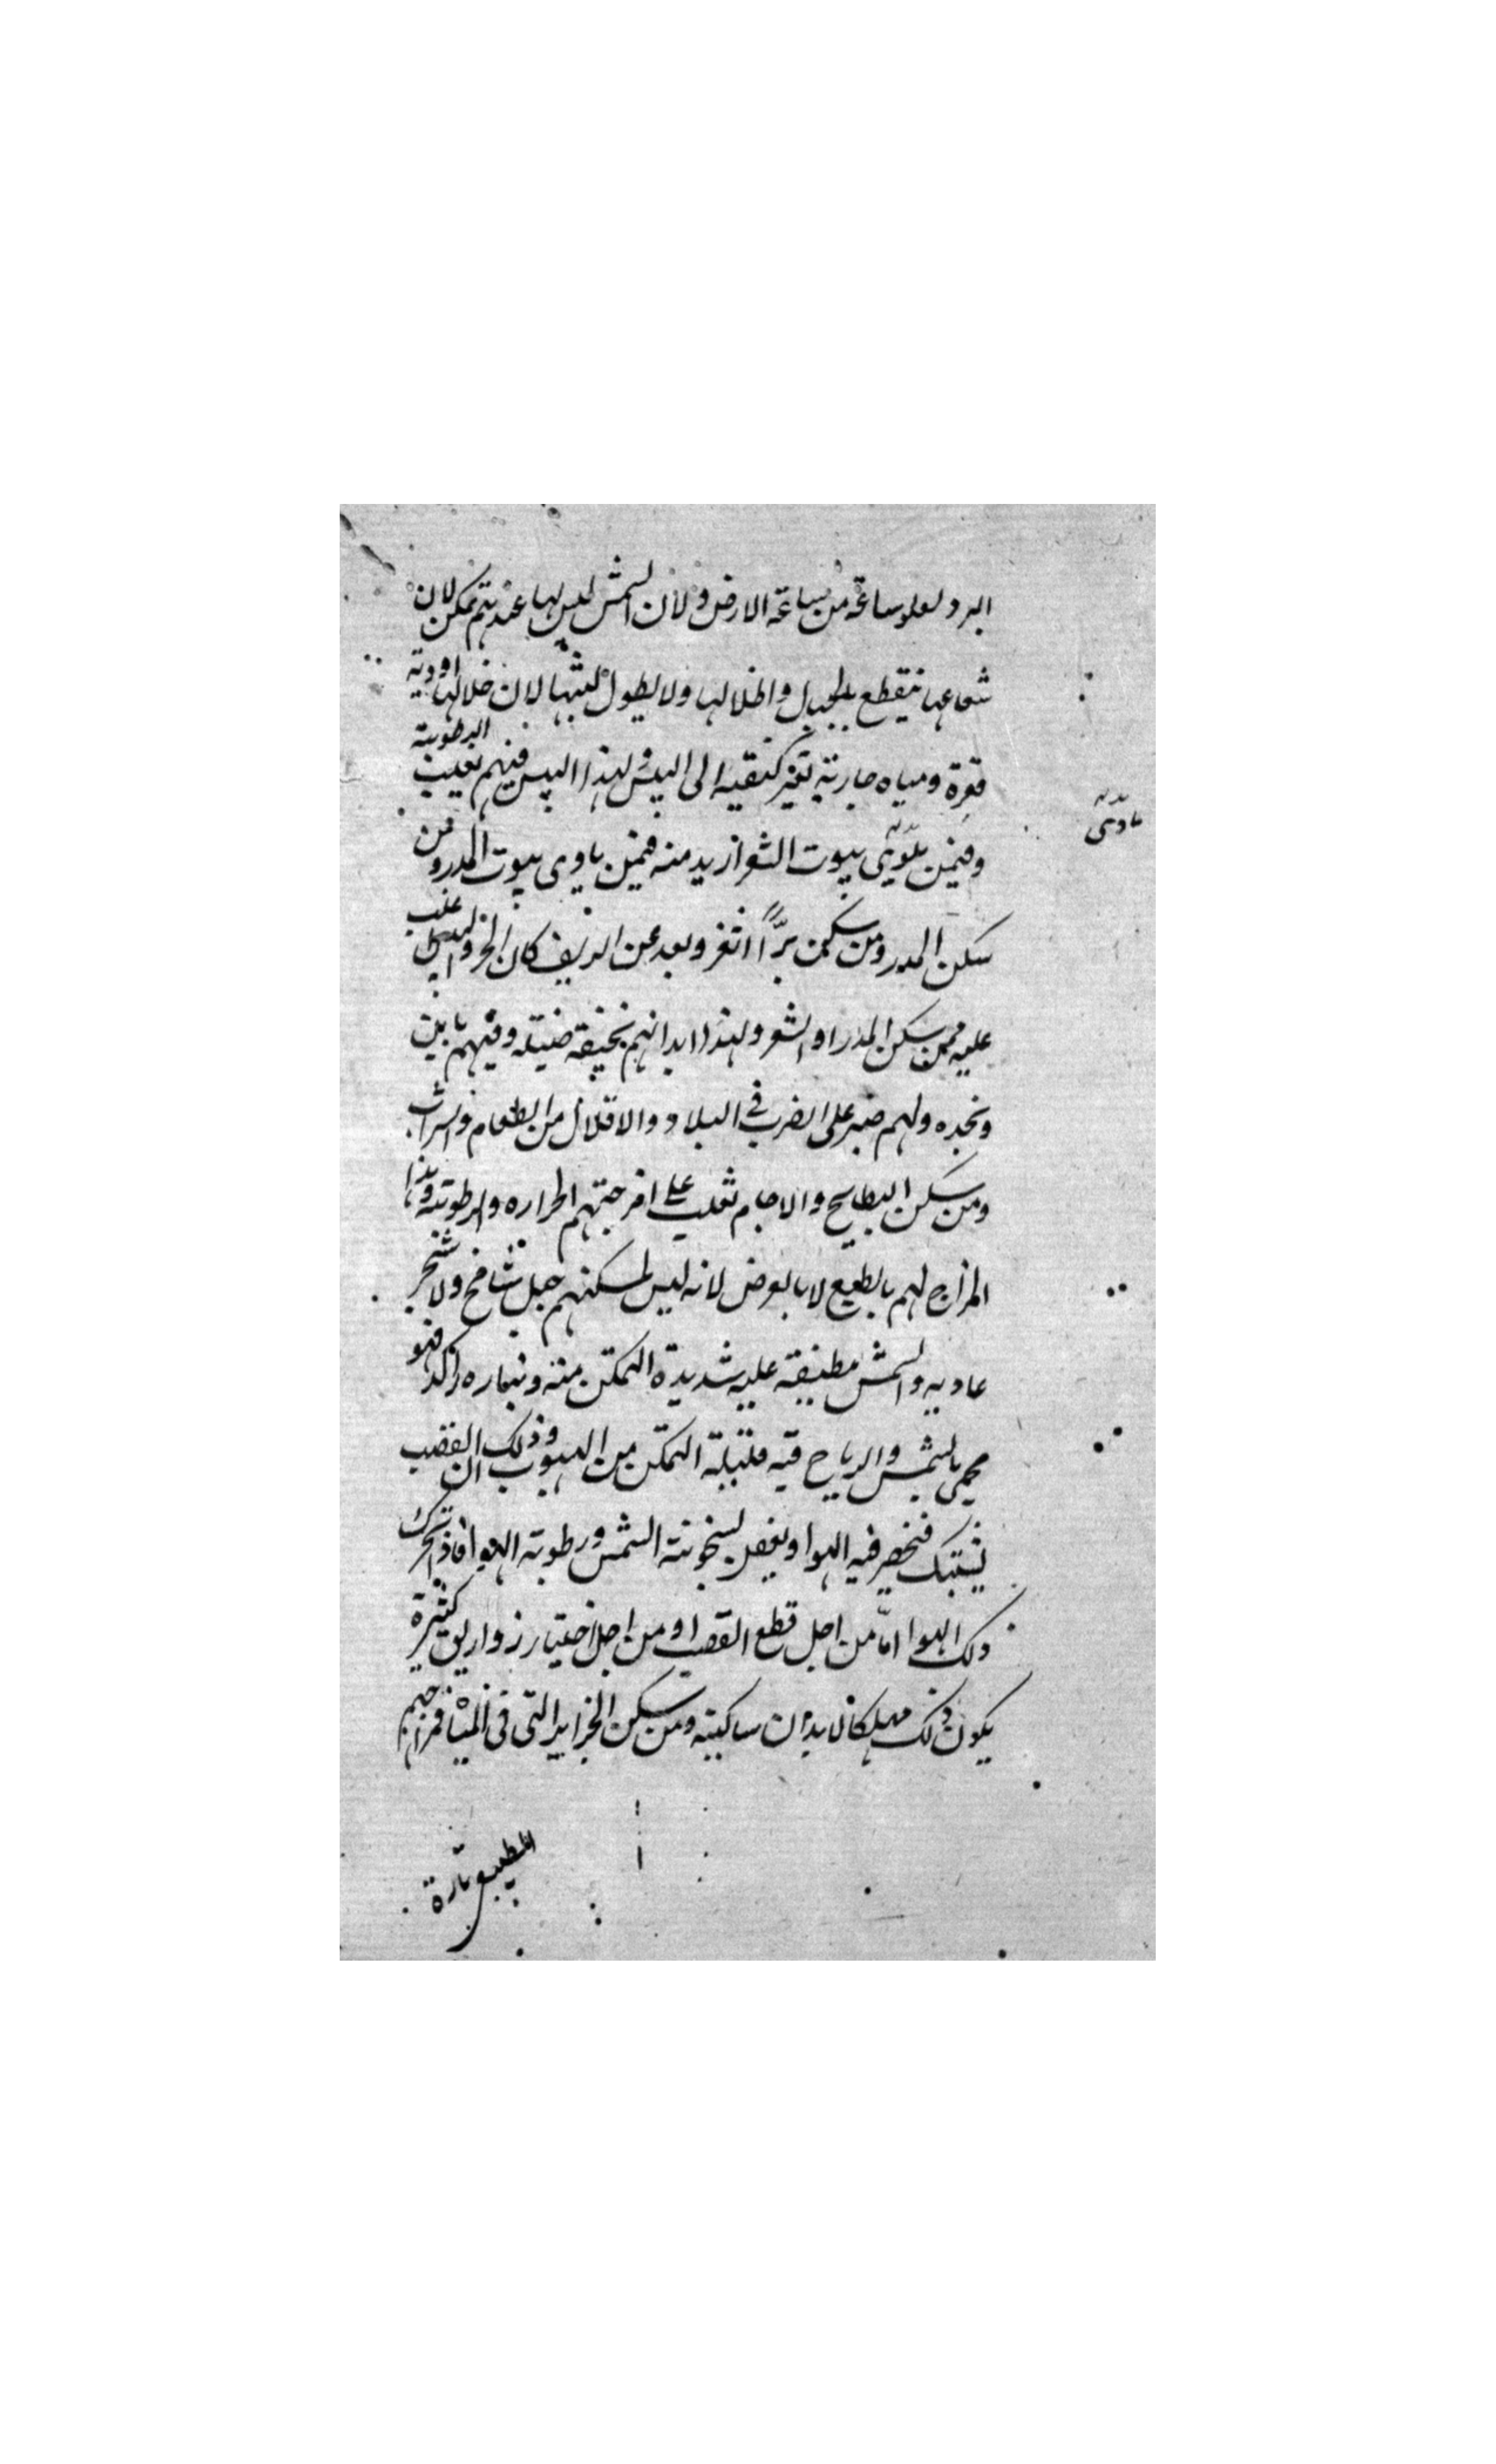 البرد لعلو ساعة من ساعة الارض ولان الشمس ليس لها عندهم تمكن لان
شعاعها ينقطع بالجبال واظلالها ولا يطول لبثها لان خلالها اودية
قعرة ومياه جارية تغير كيفيه الى اليبس ولهذا اليبس فيهم تغليب الرطوبة
وفيمن ياوى بيوت الشعر ازيد منه فيمن ياوى بيوت المدر ومن
سكن المدر ومن سكن برا اقفر وبعد عن الريف كان الحر واليبس اغلب
عليه ممن سكن المدر او الشعر ولهذا ابدانهم نحيفة ضئيلة وفيهم باس
ونجده ولهم صبر على الضرب في البلاد والاقلال من الطعام والشراب
ومن سكن البطايح والاجام تغلب على امزجتهم الحراره والرطوبة وهذا
المزاج لهم بالطبع لا بالعرض لانه ليس لمسكنهم جبل شامخ ولا شجر
عاديه والشمس مطبقة عليه شديدة التمكن منه وبخاره راكد فهو
يحمى بالشمس والرياح فيه قليلة التمكن من الهبوب وذلك ان القصب
يشتبك فينحصر فيه الهوا ويفعل لسخونة الشمس ورطوبة الهوا فاذا تحرك
ذلك الهوا اما من اجل قطع القصب او من اجل اختيار زواريق كثيرة
يكون ذلك مهلكا لابدان ساكنيه ومن سكن الجزاير التي في المياه فمزاجهم
بالطبع تارة
ياوى